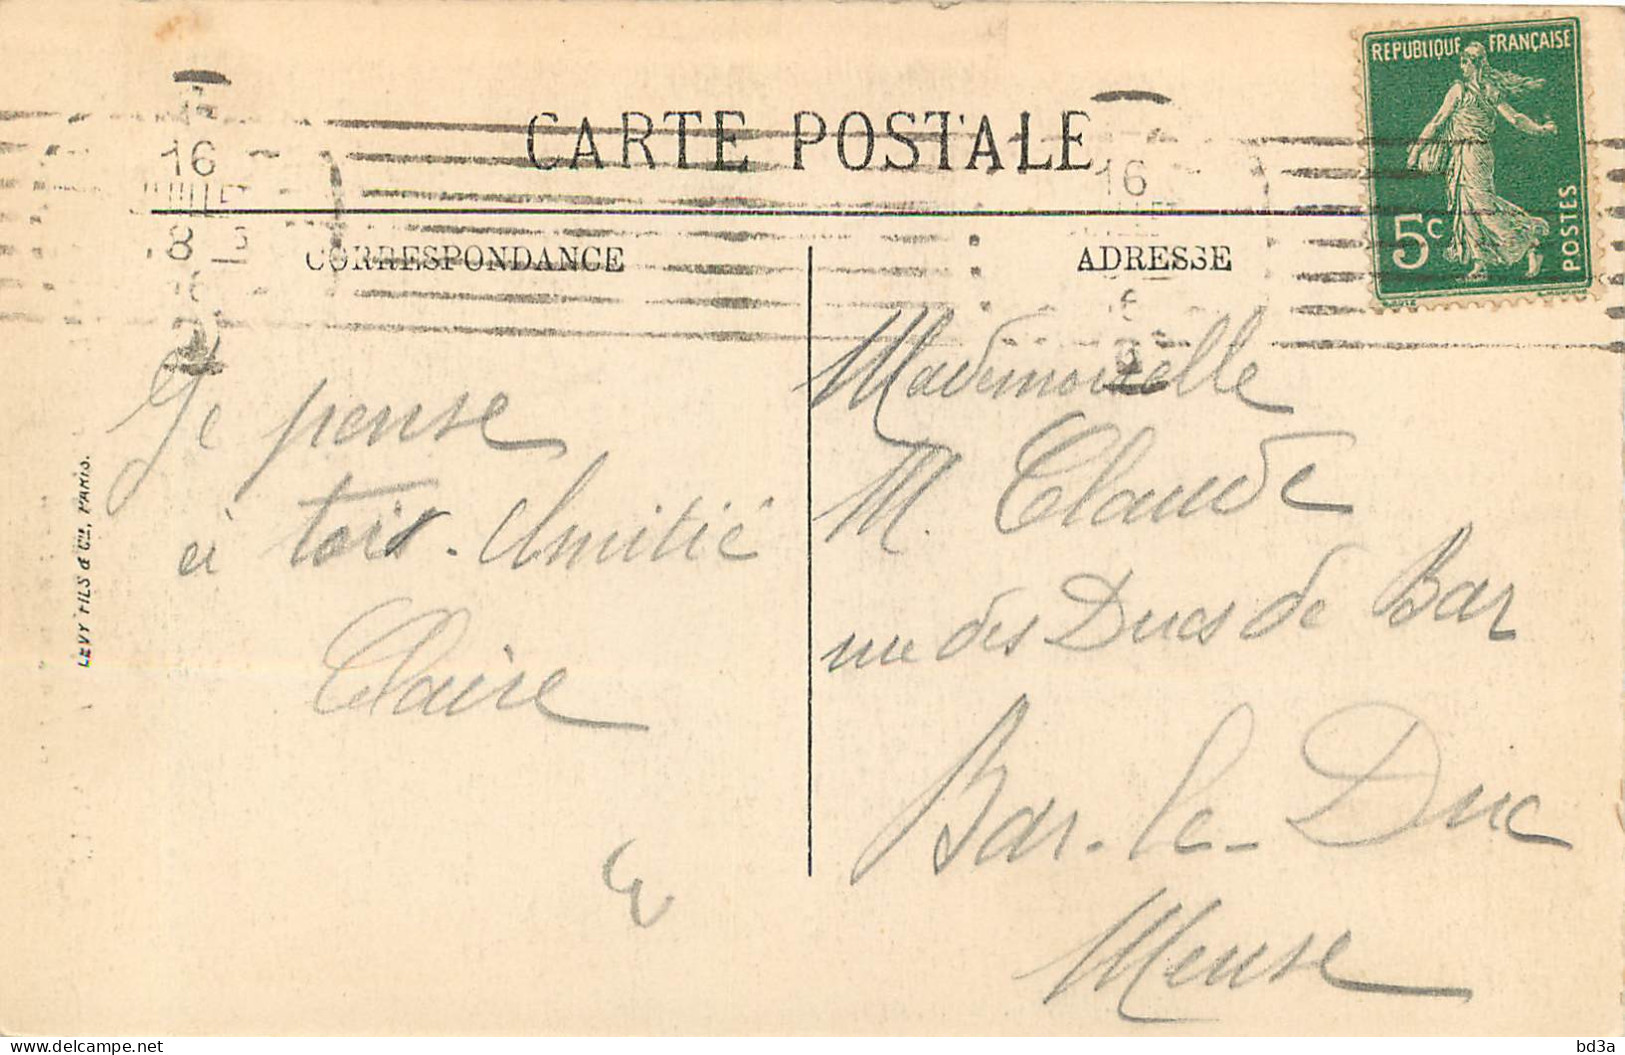 CARTE POSTALE
REPUBLIQUE FRANÇAISE
5c
POSTES
16
JUILLET
8
16
CORRESPONDANCE
ADRESSE
Je pense
à toi. Amitié
Claire
Mademoiselle
M. Claude
rue des Ducs de Bar
Bar-le-Duc
Meuse
LEVY FILS & Cie, PARIS.
delcampe.net
bd3a